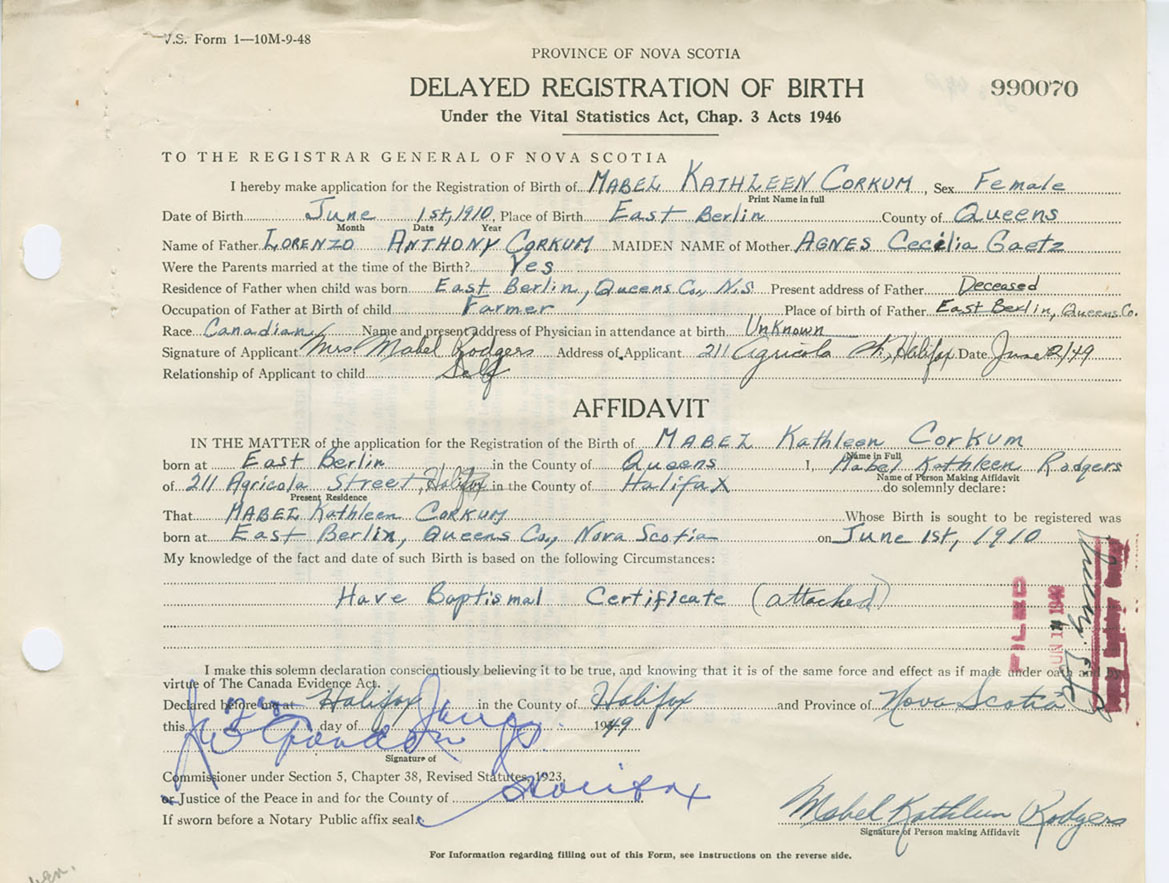 V.S. Form 1—10M-9-48
PROVINCE OF NOVA SCOTIA
DELAYED REGISTRATION OF BIRTH
990070
Under the Vital Statistics Act, Chap. 3 Acts 1946
TO THE REGISTRAR GENERAL OF NOVA SCOTIA
I hereby make application for the Registration of Birth of MABEL KATHLEEN CORKUM, Sex Female
Print Name in full
Date of Birth June 1st, 1910, Place of Birth East Berlin County of Queens
Month Date Year
Name of Father LORENZO ANTHONY CORKUM MAIDEN NAME of Mother AGNES Cecilia Gaetz
Were the Parents married at the time of the Birth? Yes
Residence of Father when child was born East Berlin, Queens Co., N.S. Present address of Father Deceased
Occupation of Father at Birth of child Farmer Place of birth of Father East Berlin, Queens Co.
Race Canadian Name and present address of Physician in attendance at birth Unknown
Signature of Applicant Mrs Mabel Rodgers Address of Applicant 211 Agricola St, Halifax Date June 2/49
Relationship of Applicant to child Self
AFFIDAVIT
IN THE MATTER of the application for the Registration of the Birth of MABEL Kathleen Corkum
Name in Full
born at East Berlin in the County of Queens I, Mabel Kathleen Rodgers
Name of Person Making Affidavit
of 211 Agricola Street, Halifax in the County of Halifax do solemnly declare:
Present Residence
That MABEL Kathleen CORKUM Whose Birth is sought to be registered was
born at East Berlin, Queens Co., Nova Scotia on June 1st, 1910
My knowledge of the fact and date of such Birth is based on the following Circumstances:
Have Baptismal Certificate (attached)
FILED
I make this solemn declaration conscientiously believing it to be true, and knowing that it is of the same force and effect as if made under oath and
virtue of The Canada Evidence Act.
Declared before me at Halifax in the County of Halifax and Province of Nova Scotia
this day of June 1949
Signature of
Commissioner under Section 5, Chapter 38, Revised Statutes, 1923,
or Justice of the Peace in and for the County of Halifax
If sworn before a Notary Public affix seal.
Mabel Kathleen Rodgers
Signature of Person making Affidavit
For Information regarding filling out of this Form, see instructions on the reverse side.